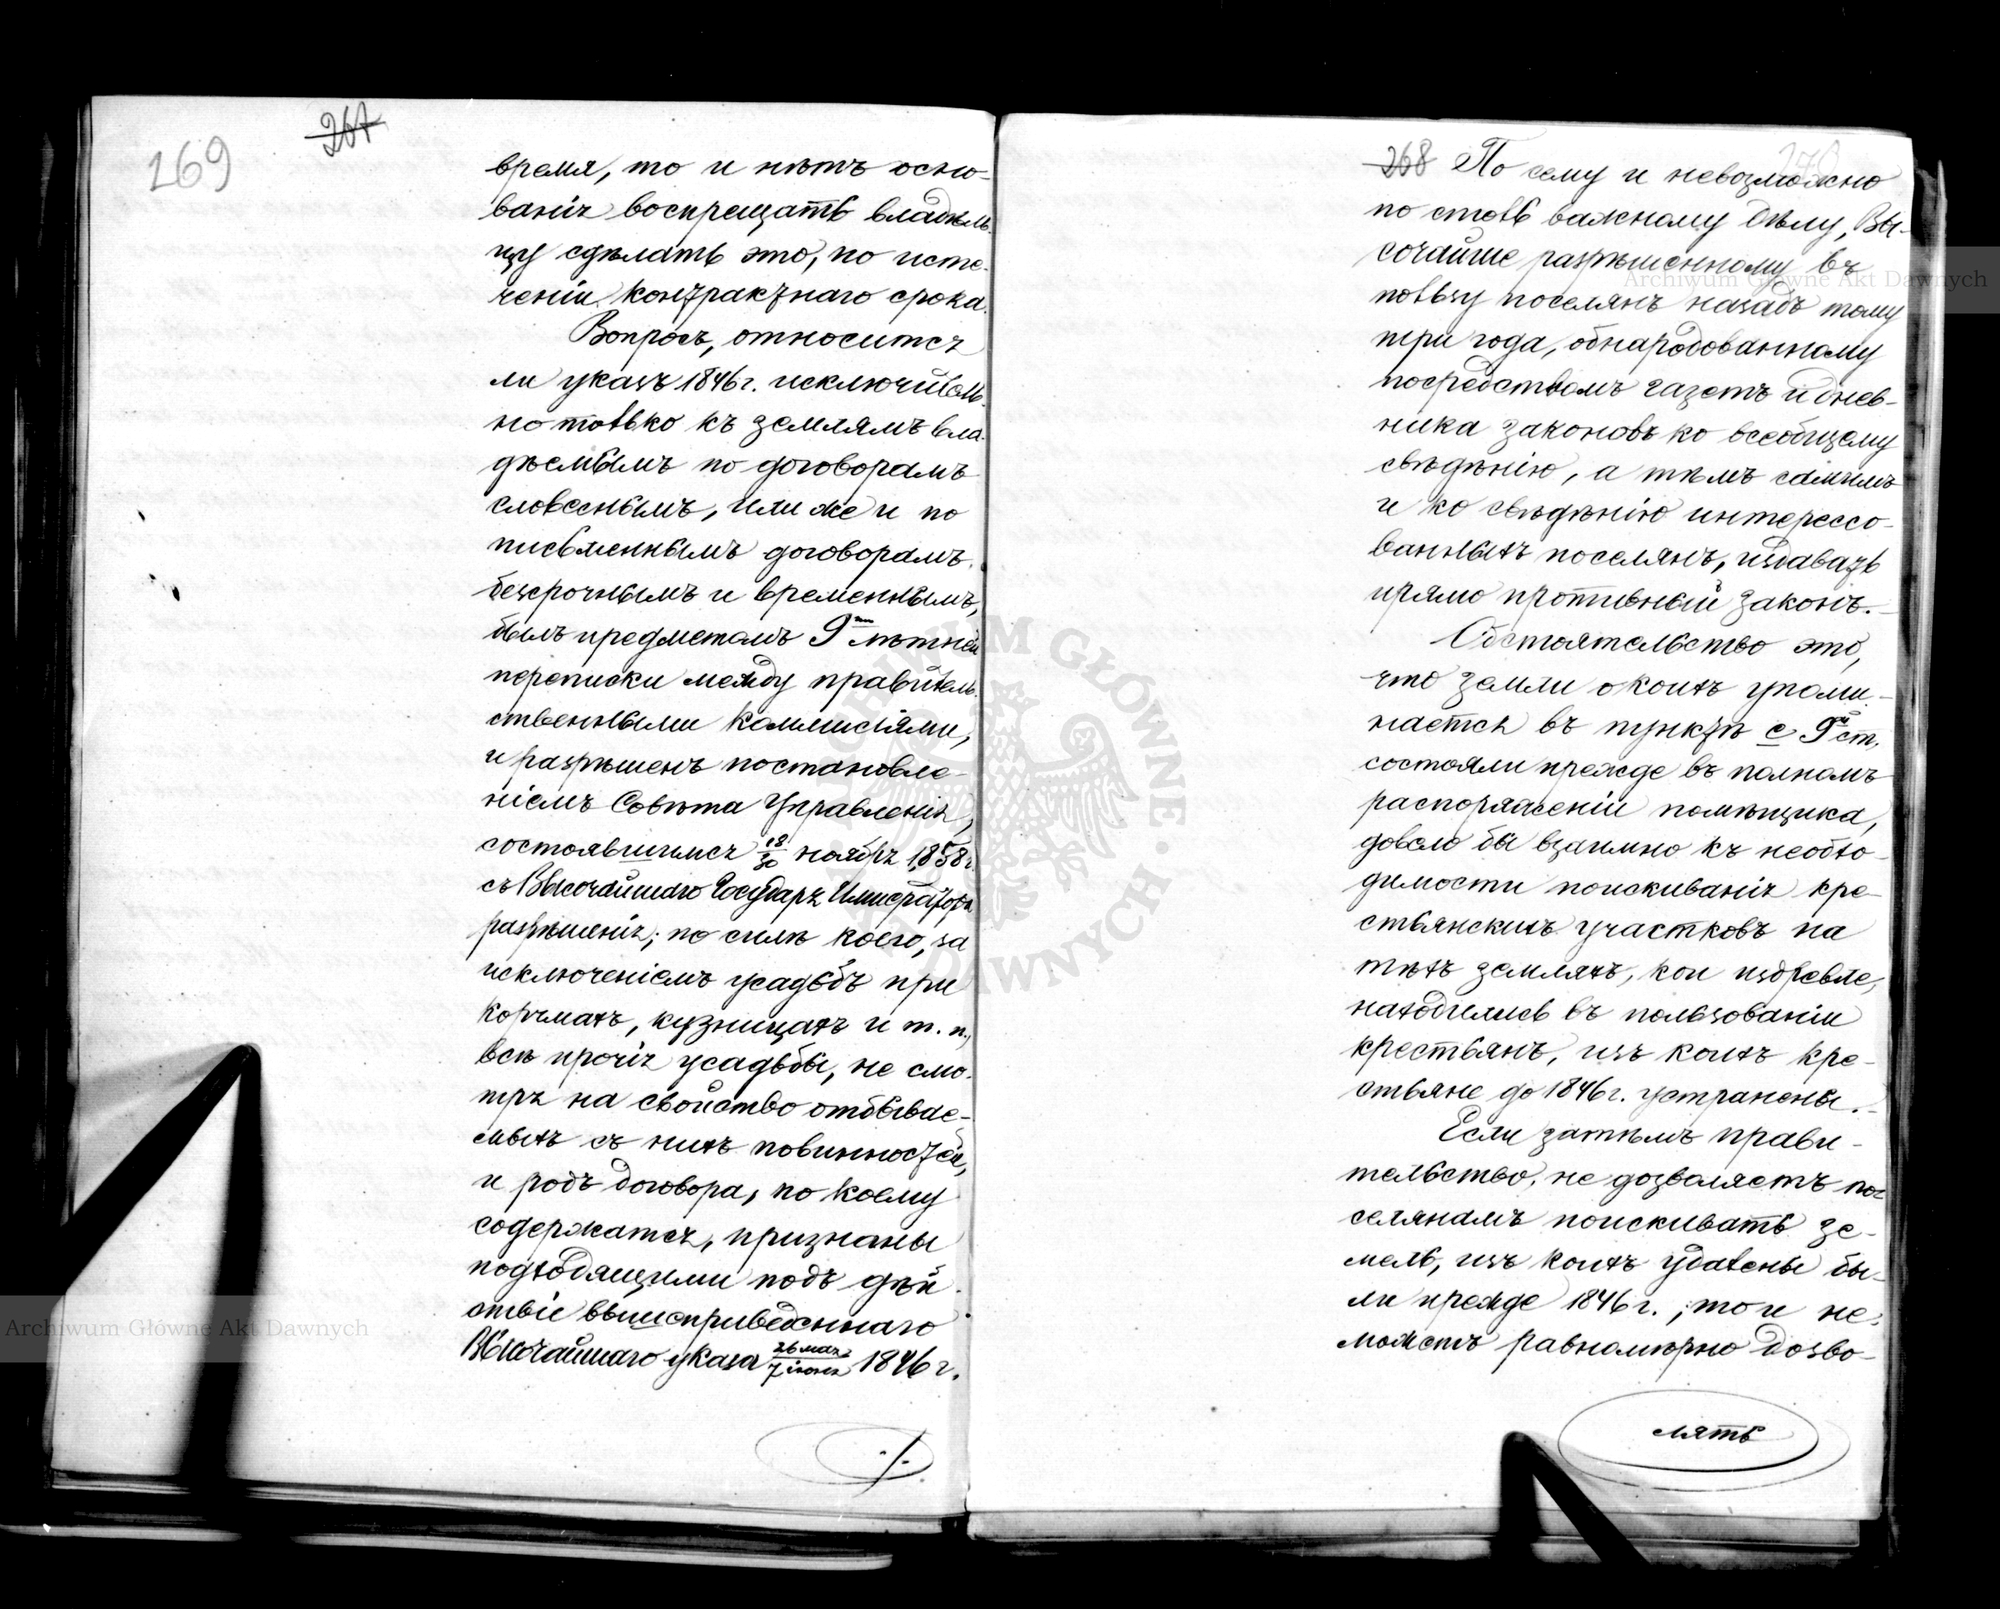 169
267
время, то и нѣтъ осно-
ванія воспрещать владѣль-
цу сдѣлать это, по исте-
ченіи контрактнаго срока.
Вопросъ, относится
ли указъ 1846 г. исключитель-
но только къ землямъ вла-
дѣемымъ по договорамъ
словеснымъ, или же и по
письменнымъ договорамъ
безсрочнымъ и временнымъ,
былъ предметомъ 9ти лѣтней
переписки между правитель-
ственными коммисіями,
и разрѣшенъ постановле-
ніемъ Совѣта Управленія,
состоявшимся 18/30 ноября 1858 г.
съ Высочайшаго Государя Императора
разрѣшенія; по силѣ коего, за
исключеніемъ усадьбъ при
корчмахъ, кузницахъ и т. п.,
всѣ прочія усадьбы, не смо-
тря на свойство отбывае-
мыхъ съ нихъ повинностей,
и родъ договора, по коему
содержатся, признаны
подходящими подъ дѣй-
ствіе вышеприведеннаго
Высочайшаго указа 26 мая/7 іюня 1846 г.
./.
268
270
По сему и невозможно
по столь важному дѣлу, Вы-
сочайше разрѣшенному въ
пользу поселянъ назадъ тому
три года, обнародованному
посредствомъ газетъ и днев-
ника законовъ ко всеобщему
свѣдѣнію, а тѣмъ самымъ
и ко свѣдѣнію интерессо-
ванныхъ поселянъ, издавать
прямо противный законъ.
Обстоятельство это,
что земли о коихъ упоми-
нается въ пунктѣ с 9й ст.
состояли прежде въ полномъ
распоряженіи помѣщика,
довело бы взаимно къ необхо-
димости поискиванія кре-
стьянскихъ участковъ на
тѣхъ земляхъ, кои издревле,
находились въ пользованіи
крестьянъ, изъ коихъ кре-
стьяне до 1846 г. устранены.
Если затѣмъ прави-
тельство, не дозволяетъ по-
селянамъ поискивать зе-
мель, изъ коихъ удалены бы-
ли прежде 1846 г.; то и не
можетъ равномѣрно дозво-
лять
Archiwum Główne Akt Dawnych
Archiwum Główne Akt Dawnych
ARCHIWUM GŁÓWNE AKT DAWNYCH